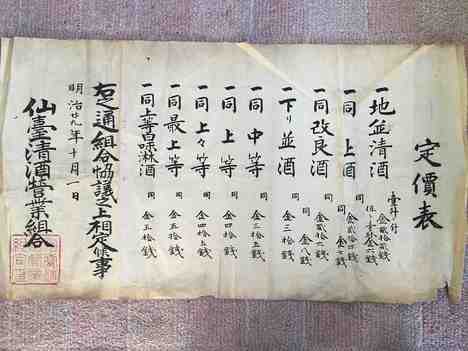 定價表
一地並清酒 壹升ニ付 金貳拾貳銭
一同上酒 同 金貳拾四銭
一同改良酒 同 金貳拾六銭
一下り並酒 同 金三拾銭
一同中等 同 金三拾五銭
一同上等 同 金四拾銭
一同上々等 同 金四拾五銭
一同最上等 同 金五拾銭
一同上等白味淋酒 同 金五拾銭
右之通組合協議之上相定候事
明治廿九年十月一日
仙臺清酒營業組合